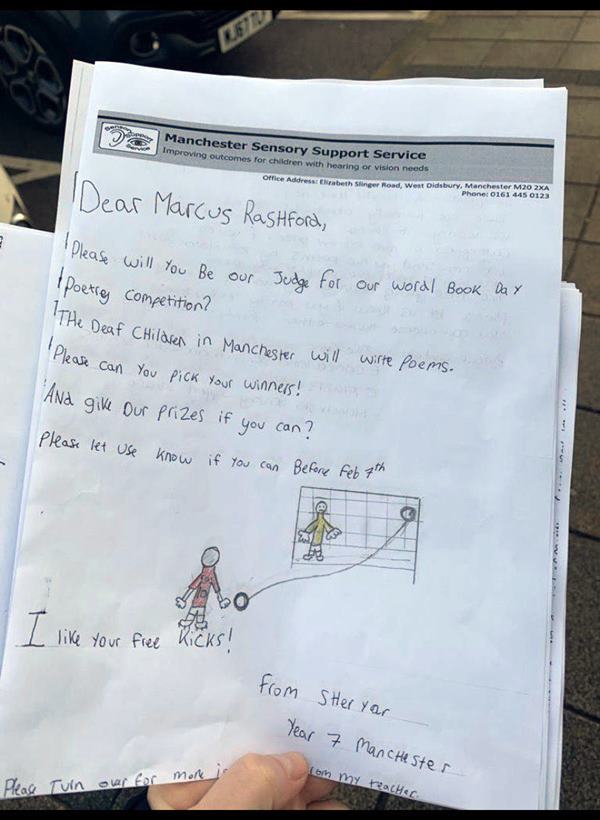 WJ67TU
Sensory Support Service
Manchester Sensory Support Service
Improving outcomes for children with hearing or vision needs
Office Address: Elizabeth Slinger Road, West Didsbury, Manchester M20 2XA
Phone: 0161 445 0123
Dear Marcus Rashford,
Please will You Be our Judge for our worldl Book Day
Poetry Competition?
The Deaf Children in Manchester will wirte Poems.
Please can You Pick Your winners!
And give Our Prizes if you can?
Please let use know if You can Before Feb 7th
10
I like Your free Kicks!
From Sheryar
Year 7 Manchester
Please Turn over for more from my teacher.